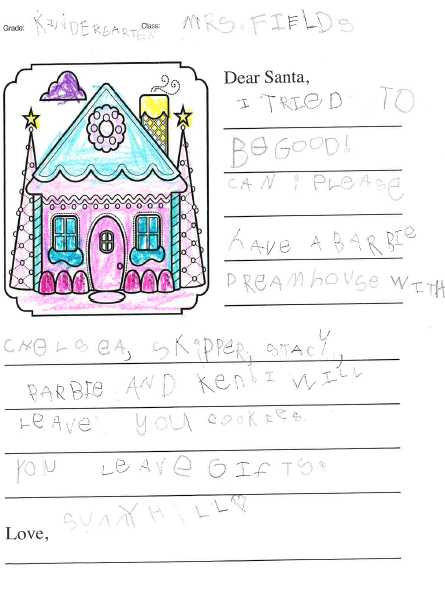 Grade: KINDERGARTEN Class: MRS. FIELDS
Dear Santa,
I TRIED TO
BE GOOD!
CAN I PLEASE
HAVE A BARBIE
DREAMHOUSE WITH
CHELSEA, SKIPPER, STACY,
BARBIE AND KEN! I WILL
LEAVE YOU COOKIES.
YOU LEAVE GIFTS.
Love, SUNNY HILL♡